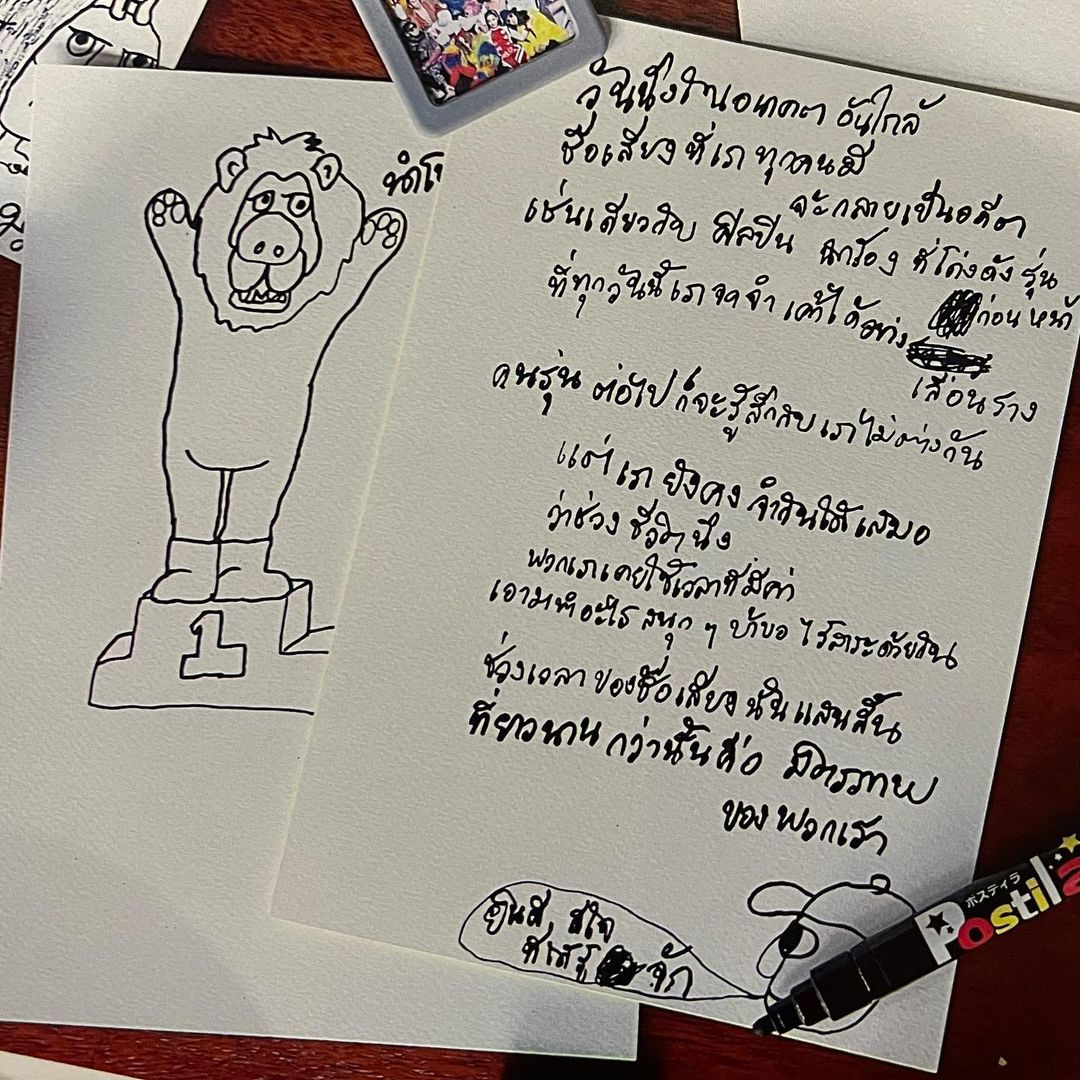 ทำไ
วันนึงในอนาคต อันใกล้
ชื่อเสียง ที่เรา ทุกคนมี
จะกลายเป็นอดีต
เช่นเดียวกับ ศิลปิน นักร้อง ที่โด่งดัง รุ่น
ก่อนหน้า
ที่ทุกวันนี้ เรา จดจำ เค้าได้อย่าง
เลือนราง
คนรุ่น ต่อไป ก็จะรู้สึกกับ เราไม่ต่างกัน
แต่ เรา ยังคง จำวันได้เสมอ
ว่าช่วง ชีวิตนึง
พวกเราเคยใช้เวลาที่มีค่า
เอามาทำอะไร สนุก ๆ บ้าบอ ไร้สาระด้วยกัน
ช่วงเวลา ของชื่อเสียง นั้น แสนสั้น
ที่ยาวนาน กว่านั้นคือ มิตรภาพ
ของ พวกเรา
ยินดี
จัก
ポスティラ
Postila
1